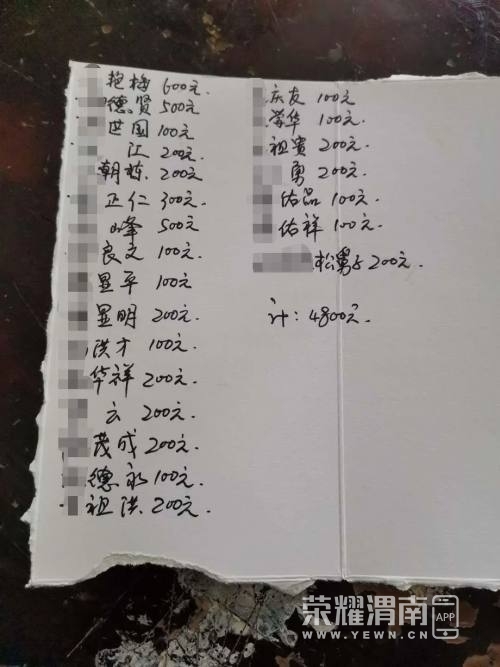 艳梅 600元.
德贤 500元
世国 100元
江 200元.
朝栋. 200元
正仁 300元.
峰 500元
良文 100元.
显平 100元
显明 200元.
洪才 100元.
华祥 200元.
云 200元.
茂成 200元.
德永 100元.
祖洪. 200元.
庆友 100元
荣华 100元.
祖贵 200元.
勇 200元.
佑品 100元.
佑祥 100元.
松舅 200元.
计: 4800元.
荣耀渭南 APP
WWW.YEWN.CN